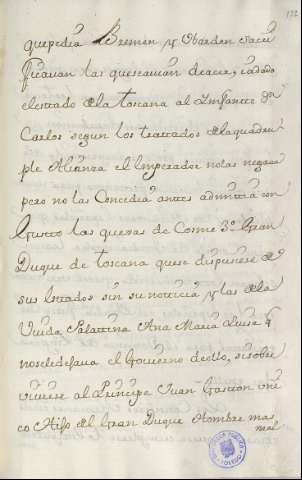 122
que pedia Bremen y Obarden
ficavan las que seavian de acer, i dado
el estado de la toscana al Infante dn
Carlos segun los trattados de la quadru
ple Alianza el Imperador no las negava
pero no las Concedia antes admitia con
Gusto las quexas de Cosme 3º Gran
Duque de toscana que se dispusiese de
sus Estados sin su noticia y las de la
Viuda Palattina Ana Maria Luisa q
no se le dejava el Govierno de ello, si sobre
viviese al Principe Juan Gaston uni
co Hijo del Gran Duque Hombre mas
mal
BIBLIOTECA PUBLICA
TOLEDO